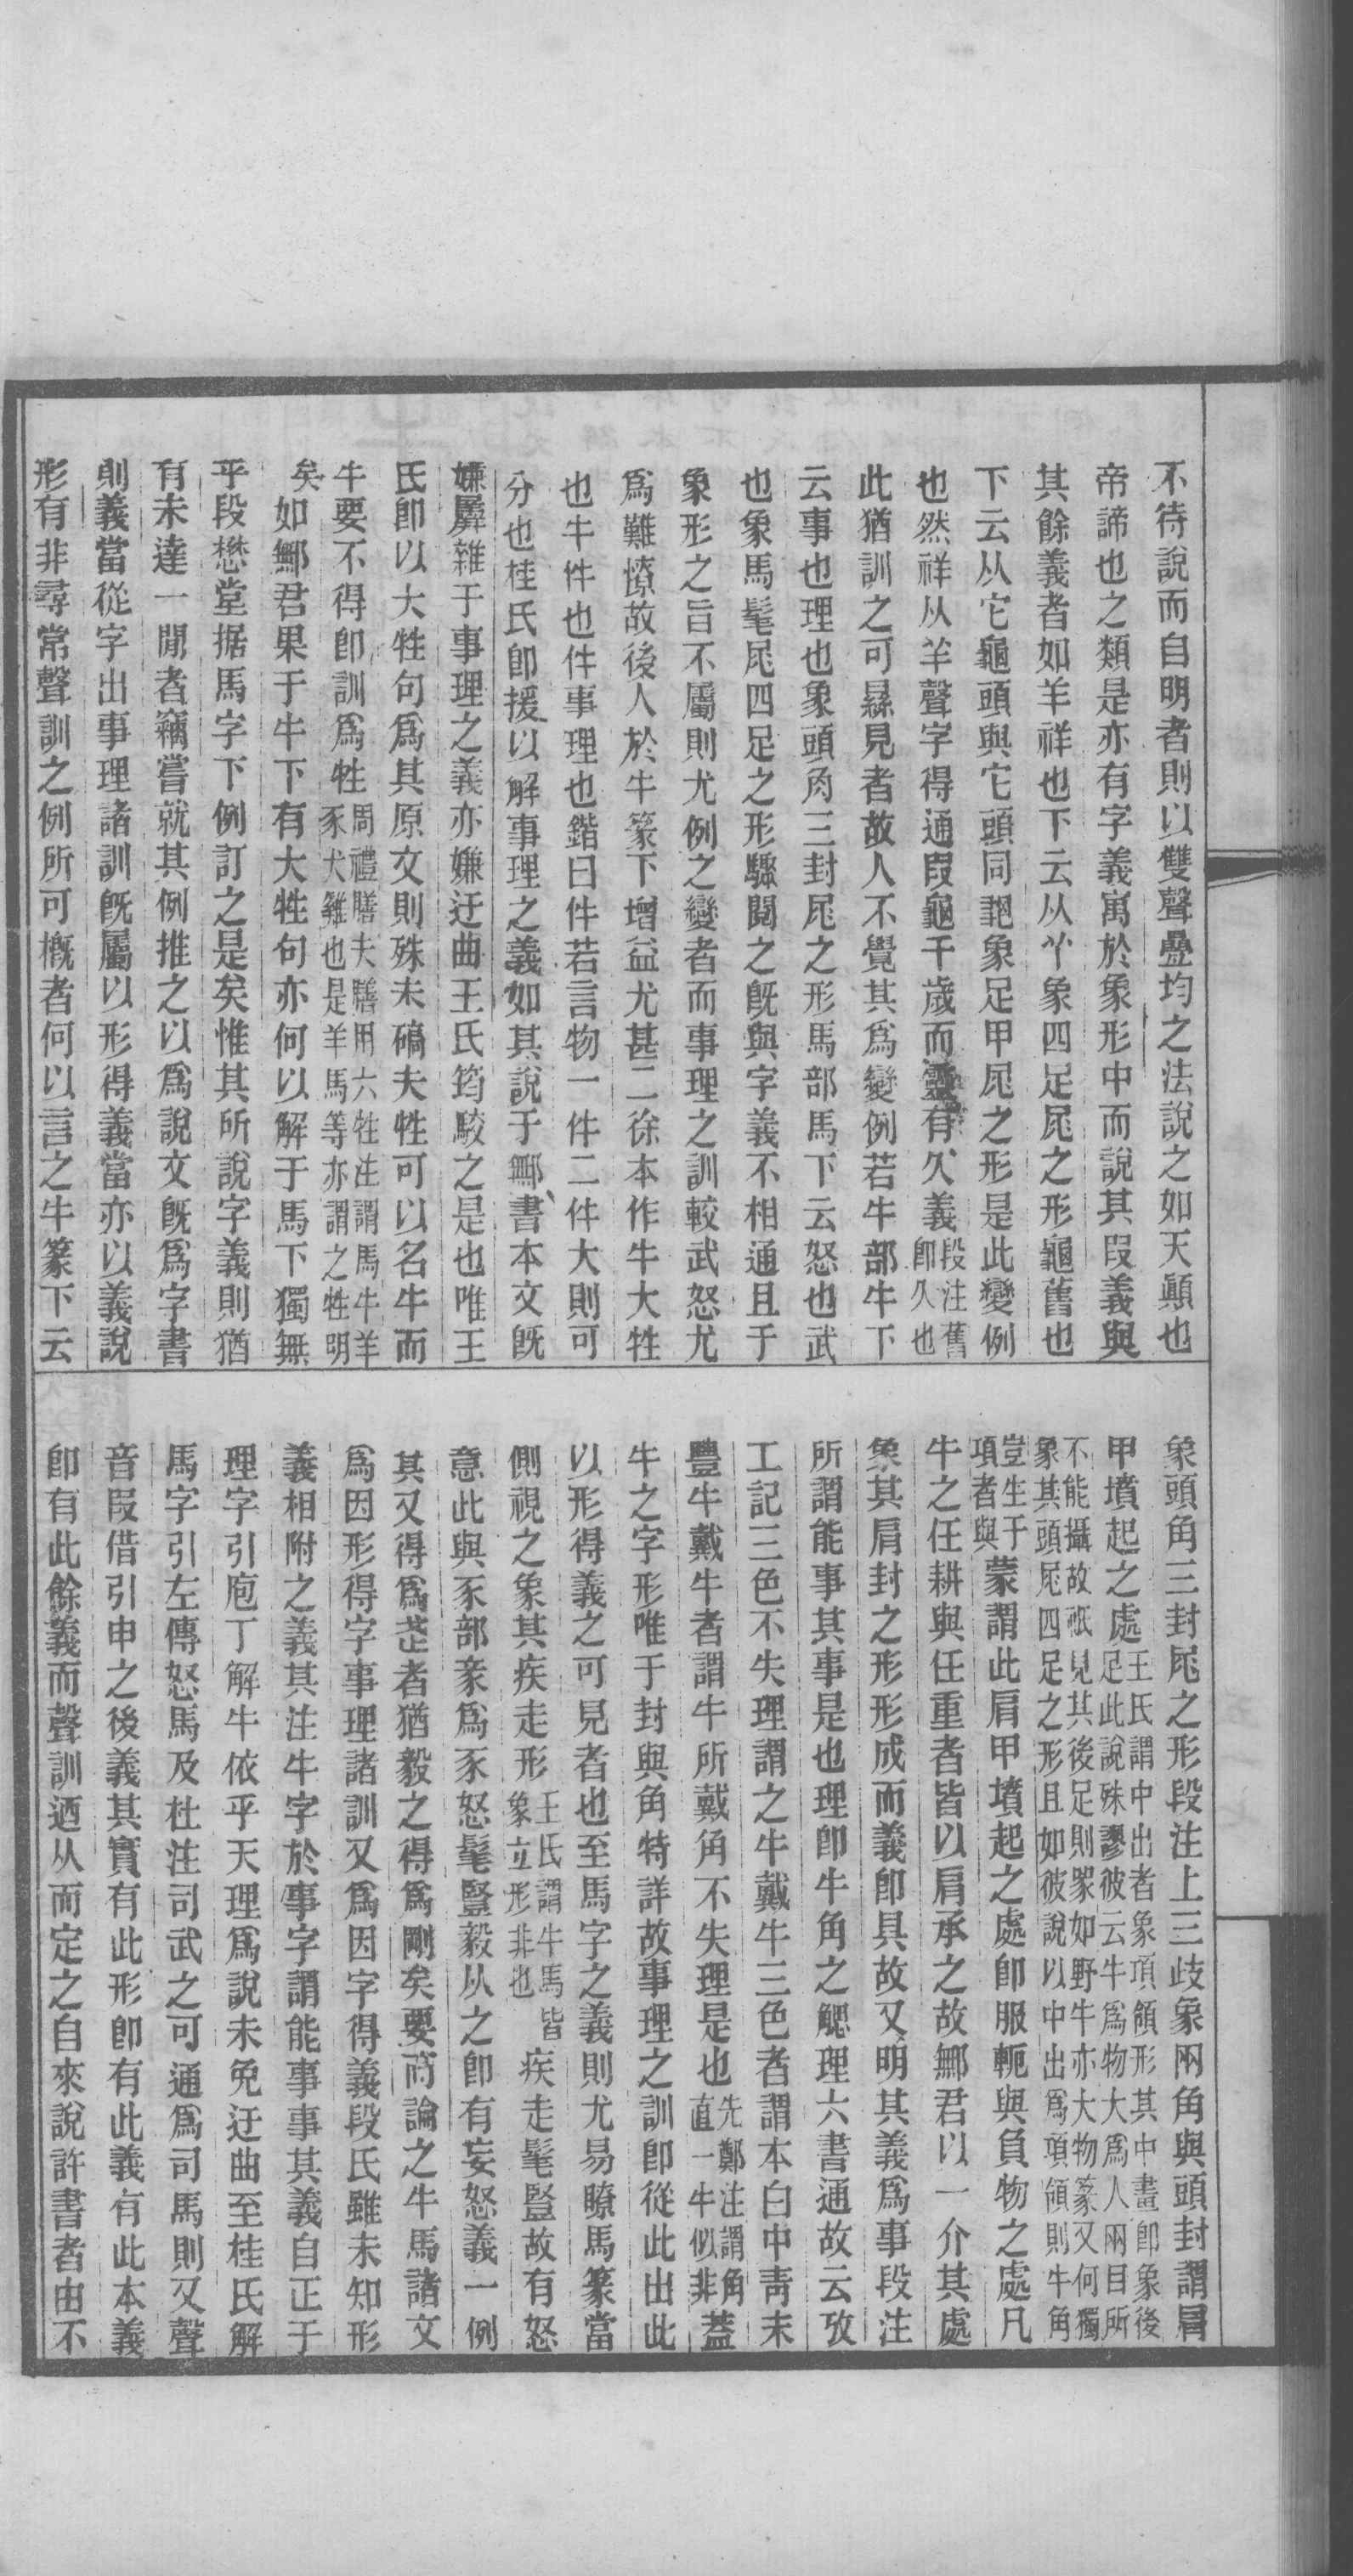 不待說而自明者則以雙聲疊均之法說之如天顚也
帝諦也之類是亦有字義寓於象形中而說其叚義與
其餘義者如羊祥也下云从𦫳象四足尾之形龜舊也
下云从它龜頭與它頭同龜象足甲尾之形是此變例
也然祥从羊聲字得通叚龜千歲而靈有久義段注舊卽久也
此猶訓之可㬎見者故人不覺其爲變例若牛部牛下
云事也理也象頭角三封尾之形馬部馬下云怒也武
也象馬髦尾四足之形驟閱之旣與字義不相通且于
象形之旨不屬則尤例之變者而事理之訓較武怒尤
爲難憭故後人於牛篆下增益尤甚二徐本作牛大牲
也牛件也件事理也鍇曰件若言物一件二件大則可
分也桂氏卽援以解事理之義如其說于鄦書本文旣
嫌羼雜于事理之義亦嫌迂曲王氏筠駮之是也唯王
氏卽以大牲句爲其原文則殊未碻夫牲可以名牛而
牛要不得卽訓爲牲周禮膳夫膳用六牲注謂馬牛羊豕犬雞也是羊馬等亦謂之牲明
矣如鄦君果于牛下有大牲句亦何以解于馬下獨無
乎段懋堂据馬字下例訂之是矣惟其所說字義則猶
有未達一閒者竊嘗就其例推之以爲說文旣爲字書
則義當從字出事理諸訓旣屬以形得義當亦以義說
形有非尋常聲訓之例所可槪者何以言之牛篆下云
象頭角三封尾之形段注上三歧象㒳角與頭封謂肩
甲墳起之處王氏謂中出者象項領形其中畫卽象後足此說殊謬彼云牛爲物大爲人兩目所
不能攝故祇見其後足則㒺如野牛亦大物篆又何獨象其頭尾四足之形且如彼說以中出爲項領則牛角
豈生于項者與蒙謂此肩甲墳起之處卽服軛與負物之處凡
牛之任耕與任重者皆以肩承之故鄦君以一介其處
象其肩封之形形成而義卽具故又明其義爲事段注
所謂能事其事是也理卽牛角之䚡理六書通故云攷
工記三色不失理謂之牛戴牛三色者謂本白中靑末
豐牛戴牛者謂牛所戴角不失理是也先鄭注謂角直一牛似非蓋
牛之字形唯于封與角特詳故事理之訓卽從此出此
以形得義之可見者也至馬字之義則尤易瞭馬篆當
側視之象其疾走形王氏謂牛馬皆象立形非也疾走髦豎故有怒
意此與豕部㒸爲豕怒髦豎毅从之卽有妄怒義一例
其又得爲武者猶毅之得爲剛矣要而論之牛馬諸文
爲因形得字事理諸訓又爲因字得義段氏雖未知形
義相附之義其注牛字於事字謂能事事其義自正于
理字引庖丁解牛依乎天理爲說未免迂曲至桂氏解
馬字引左傳怒馬及杜注司武之可通爲司馬則又聲
音叚借引申之後義其實有此形卽有此義有此本義
卽有此餘義而聲訓迺从而定之自來說許書者由不